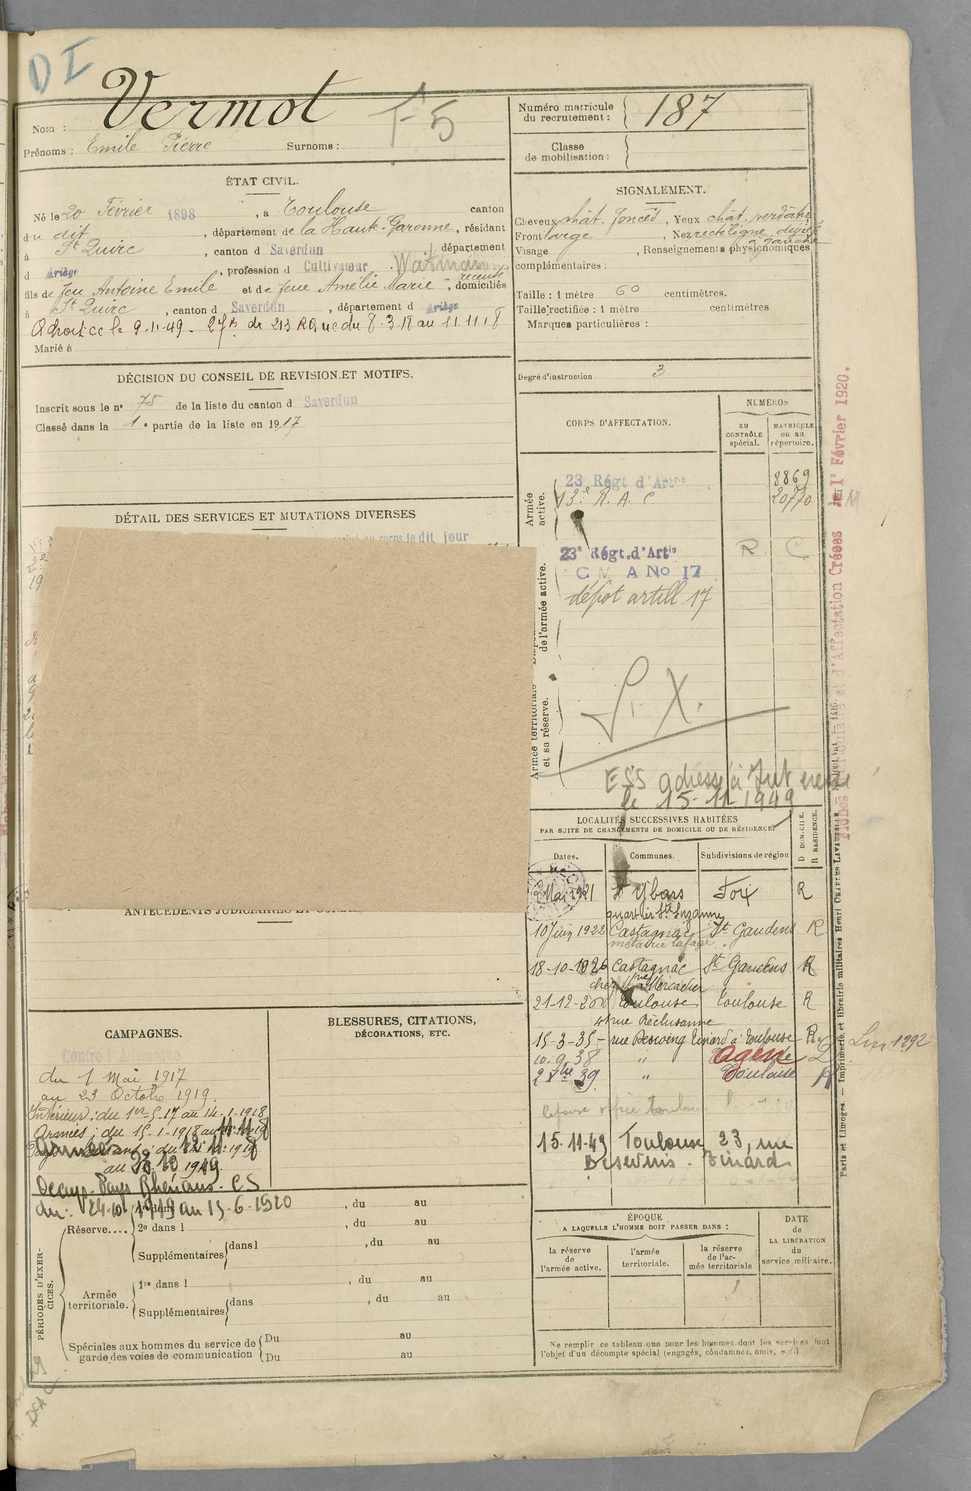 D I
Nom : Vermot
F 5
Prénoms : Emile Pierre Surnoms :
Numéro matricule
du recrutement : 187
Classe
de mobilisation :
ÉTAT CIVIL.
Né le 20 Février 1898, à Toulouse canton
du dit, département de la Haute-Garonne, résidant
à St Quirc, canton d Saverdun, département
d Ariège, profession d Cultivateur
fils de feu Antoine Emile et de feue Amélie Marie, domiciliés
à St Quirc, canton d Saverdun, département d Ariège
le 9-11-49
Marié à
SIGNALEMENT.
Cheveux chât. foncés, Yeux chât. verdâtre
Front large, Nez rectiligne dévié
à gauche
Visage , Renseignements physionomiques
complémentaires :
Taille : 1 mètre 60 centimètres.
Taille rectifiée : 1 mètre centimètres
Marques particulières :
Degré d'instruction 3
DÉCISION DU CONSEIL DE REVISION ET MOTIFS.
Inscrit sous le no 75 de la liste du canton d Saverdun
Classé dans la 1e partie de la liste en 1917
DÉTAIL DES SERVICES ET MUTATIONS DIVERSES
au corps le dit jour
CORPS D'AFFECTATION.
NUMÉROS
au
CONTRÔLE
spécial.
MATRICULE
ou au
répertoire.
Armée
active.
23 Régt d'Artie
8869
13e R. A. C.
20770
de l'armée active.
23e Régt. d'Artie
R. C
C M A No 17
dépôt artill. 17
Armée territoriale
et sa réserve.
S. X.
ESS adresse à
le 15-11-1949
Fiches et d'Affectation Créées le 1er Février 1920.
LOCALITÉS SUCCESSIVES HABITÉES
PAR SUITE DE CHANGEMENTS DE DOMICILE OU DE RÉSIDENCE.
Dates.
Communes.
Subdivisions de région
D DOMICILE.
R RÉSIDENCE.
2 Mai 1921 St Ybars Foix R
quartier Ste Suzanne
10 Juin 1922 Castagnac St Gaudens R
métairie Lafage
18-10-1926 Castagnac St Gaudens R
chez Mercadier
21-12-20 Toulouse Toulouse R
rue Réclusanne
15-3-35 - rue Toulouse R
10.9.38 "
2 39 " Toulouse R
15-11-49 Toulouse 23, rue
Binard
ANTÉCÉDENTS JUDICIAIRES ET
CAMPAGNES.
Contre l'Allemagne
du 1 Mai 1917
au 23 Octobre 1919.
Intérieur : du 1er-5-17 au 14-1-1918
Armées : du 15-1-1918 au
Occup. Pays Rhénans. CS
du : 24-10-1919 au 15-6-1920
BLESSURES, CITATIONS,
DÉCORATIONS, ETC.
PÉRIODES D'EXERCICES.
Réserve.... 1re dans l , du au
2e dans l , du au
Supplémentaires dans l , du au
Armée
territoriale. 1re dans l , du au
Supplémentaires dans , du au
Spéciales aux hommes du service de
garde des voies de communication Du au
Du au
ÉPOQUE
A LAQUELLE L'HOMME DOIT PASSER DANS :
la réserve
de
l'armée active.
l'armée
territoriale.
la réserve
de l'ar-
mée territoriale
DATE
de
LA LIBÉRATION
du
service militaire.
Ne remplir ce tableau que pour les hommes dont les services font
l'objet d'un décompte spécial (engagés, condamnés, omis, etc.)
Paris et Limoges. — Imprimerie et librairie militaires Henri CHARLES-LAVAUZELLE.